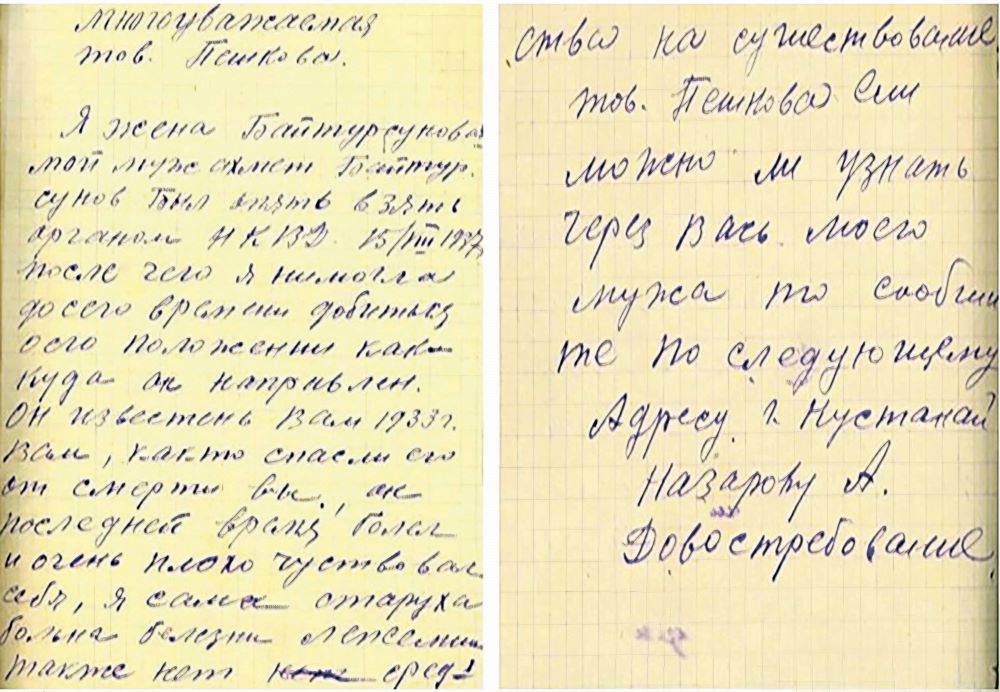 многоуважаемая
тов. Пешкова.
Я жена Байтурсунова
мой муж ахмет Байтур.
сунов был опять взять
органом НКВД. 15/VIII 1937
после чего я немогла
досего времени добиться
его положении как
куда он направлен.
Он известень Вам 1933 г.
Вам, как то спасли его
от смерти вы, он
последней время, болел
и очень плохо чуствовал
себя, я сама старуха
больна белезни
также нет нет сред-
ства на существование
тов. Пешкова Если
можно ли узнать
через Вась моего
мужа то сообщи
те по следующему
Адресу г. Кустанай
Назарову А.
Довостребование